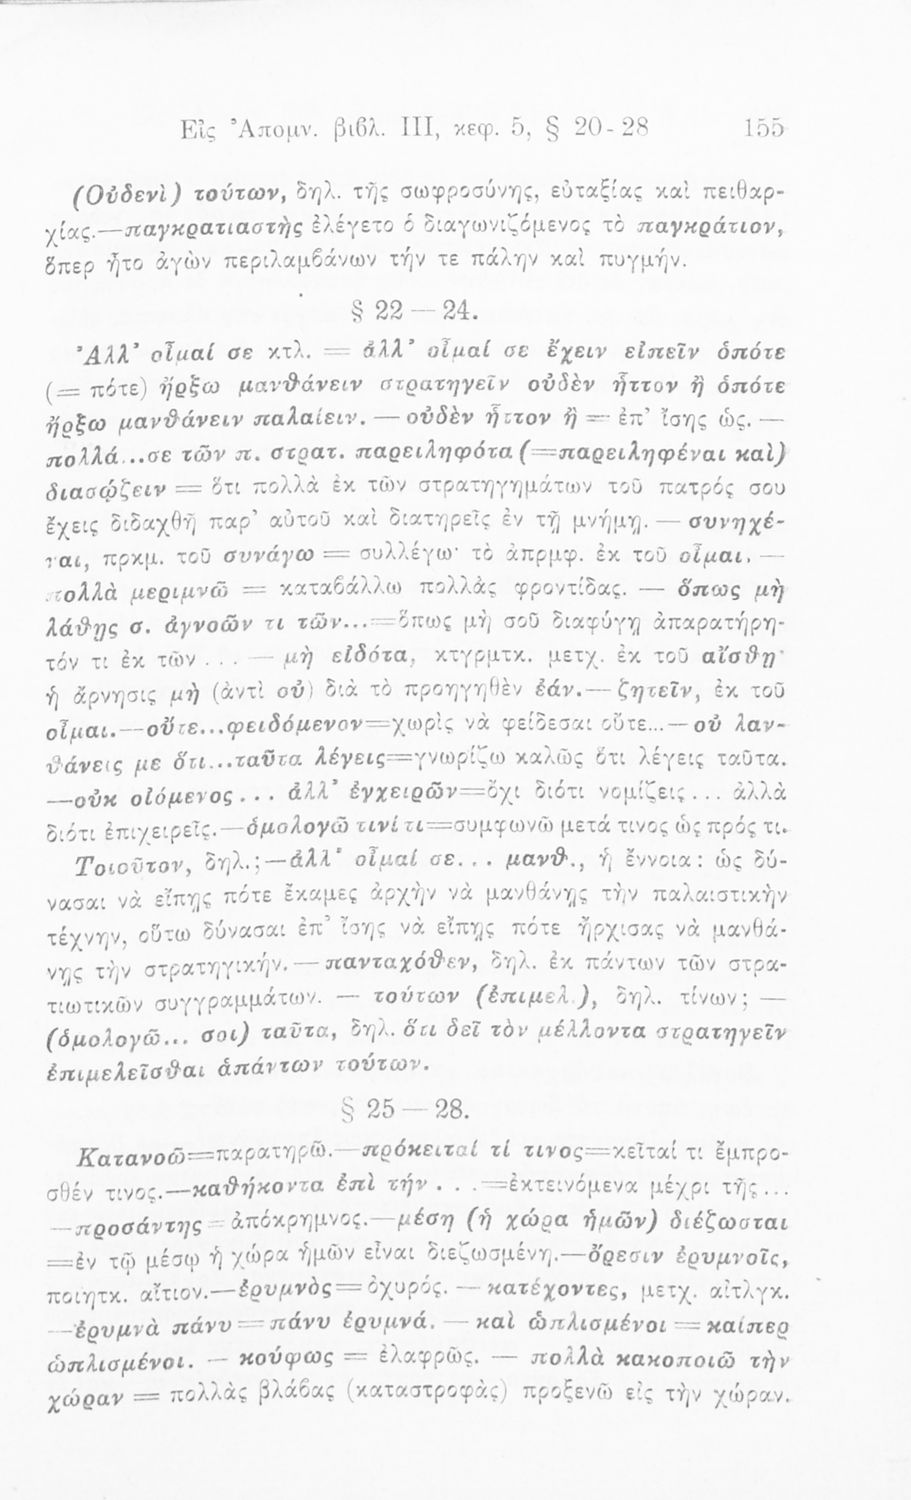 Εἰς Ἀπομν. βιβλ. III, κεφ. 5, § 20-28 155
(Οὐδενὶ) τούτων, δηλ. τῆς σωφροσύνης, εὐταξίας καὶ πειθαρ-
χίας.—παγκρατιαστὴς ἐλέγετο ὁ διαγωνιζόμενος τὸ παγκράτιον,
ὅπερ ἦτο ἀγὼν περιλαμβάνων τήν τε πάλην καὶ πυγμήν.
§ 22 — 24.
Ἀλλ' οἶμαί σε κτλ. = ἀλλ' οἶμαί σε ἔχειν εἰπεῖν ὁπότε
(= πότε) ἤρξω μανθάνειν στρατηγεῖν οὐδὲν ἧττον ἢ ὁπότε
ἤρξω μανθάνειν παλαίειν. — οὐδὲν ἧττον ἢ = ἐπ' ἴσης ὡς. —
πολλά...σε τῶν π. στρατ. παρειληφότα (=παρειληφέναι καὶ)
διασῴζειν = ὅτι πολλὰ ἐκ τῶν στρατηγημάτων τοῦ πατρός σου
ἔχεις διδαχθῆ παρ' αὐτοῦ καὶ διατηρεῖς ἐν τῇ μνήμῃ. — συνηχέ-
ναι, πρκμ. τοῦ συνάγω = συλλέγω· τὸ ἀπρμφ. ἐκ τοῦ οἶμαι. —
πολλὰ μεριμνῶ = καταβάλλω πολλὰς φροντίδας. — ὅπως μὴ
λάθῃς σ. ἀγνοῶν τι τῶν...=ὅπως μὴ σοῦ διαφύγῃ ἀπαρατήρη-
τόν τι ἐκ τῶν ... — μὴ εἰδότα, κτγρμτκ. μετχ. ἐκ τοῦ αἴσθῃ·
ἡ ἄρνησις μὴ (ἀντὶ οὐ) διὰ τὸ προηγηθὲν ἐάν.— ζητεῖν, ἐκ τοῦ
οἶμαι.—οὔτε...φειδόμενον=χωρὶς νὰ φείδεσαι οὔτε...— οὐ λαν-
θάνεις με ὅτι...ταῦτα λέγεις=γνωρίζω καλῶς ὅτι λέγεις ταῦτα.
—οὐκ οἰόμενος... ἀλλ' ἐγχειρῶν=ὄχι διότι νομίζεις... ἀλλὰ
διότι ἐπιχειρεῖς.—ὁμολογῶ τινί τι=συμφωνῶ μετά τινος ὡς πρός τι.
Τοιοῦτον, δηλ.;—ἀλλ' οἶμαί σε... μανθ., ἡ ἔννοια: ὡς δύ-
νασαι νὰ εἴπῃς πότε ἔκαμες ἀρχὴν νὰ μανθάνῃς τὴν παλαιστικὴν
τέχνην, οὕτω δύνασαι ἐπ' ἴσης νὰ εἴπῃς πότε ἤρχισας νὰ μανθά-
νῃς τὴν στρατηγικήν.— πανταχόθεν, δηλ. ἐκ πάντων τῶν στρα-
τιωτικῶν συγγραμμάτων. — τούτων (ἐπιμελ.), δηλ. τίνων; —
(ὁμολογῶ... σοι) ταῦτα, δηλ. ὅτι δεῖ τὸν μέλλοντα στρατηγεῖν
ἐπιμελεῖσθαι ἁπάντων τούτων.
§ 25 — 28.
Κατανοῶ=παρατηρῶ.—πρόκειταί τί τινος=κεῖταί τι ἔμπρο-
σθέν τινος.—καθήκοντα ἐπὶ τήν . . .=ἐκτεινόμενα μέχρι τῆς...
—προσάντης = ἀπόκρημνος.—μέση (ἡ χώρα ἡμῶν) διέζωσται
=ἐν τῷ μέσῳ ἡ χώρα ἡμῶν εἶναι διεζωσμένη.—ὄρεσιν ἐρυμνοῖς,
ποιητκ. αἴτιον.—ἐρυμνὸς= ὀχυρός. — κατέχοντες, μετχ. αἰτλγκ.
—ἐρυμνὰ πάνυ = πάνυ ἐρυμνά. — καὶ ὡπλισμένοι = καίπερ
ὡπλισμένοι. — κούφως = ἐλαφρῶς. — πολλὰ κακοποιῶ τὴν
χώραν = πολλὰς βλάβας (καταστροφὰς) προξενῶ εἰς τὴν χώραν.